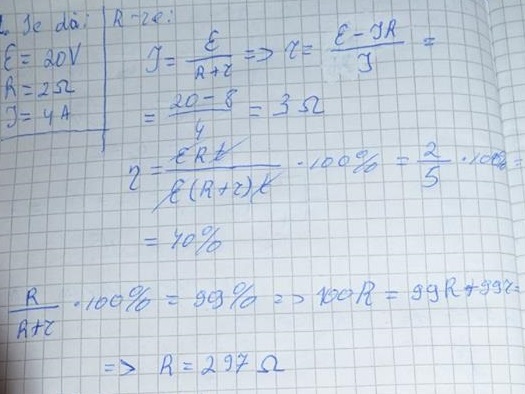 1. Se dă: R-re:
ℰ = 20V
R = 2Ω
I = 4A
I = ℰ/(R+r) => r = (ℰ - IR)/I =
= (20 - 8)/4 = 3 Ω
η = ℰRt/(ℰ(R+r)t) · 100% = 2/5 · 100% =
= 40%
R/(R+r) · 100% = 99% => 100R = 99R + 99r
=> R = 297 Ω